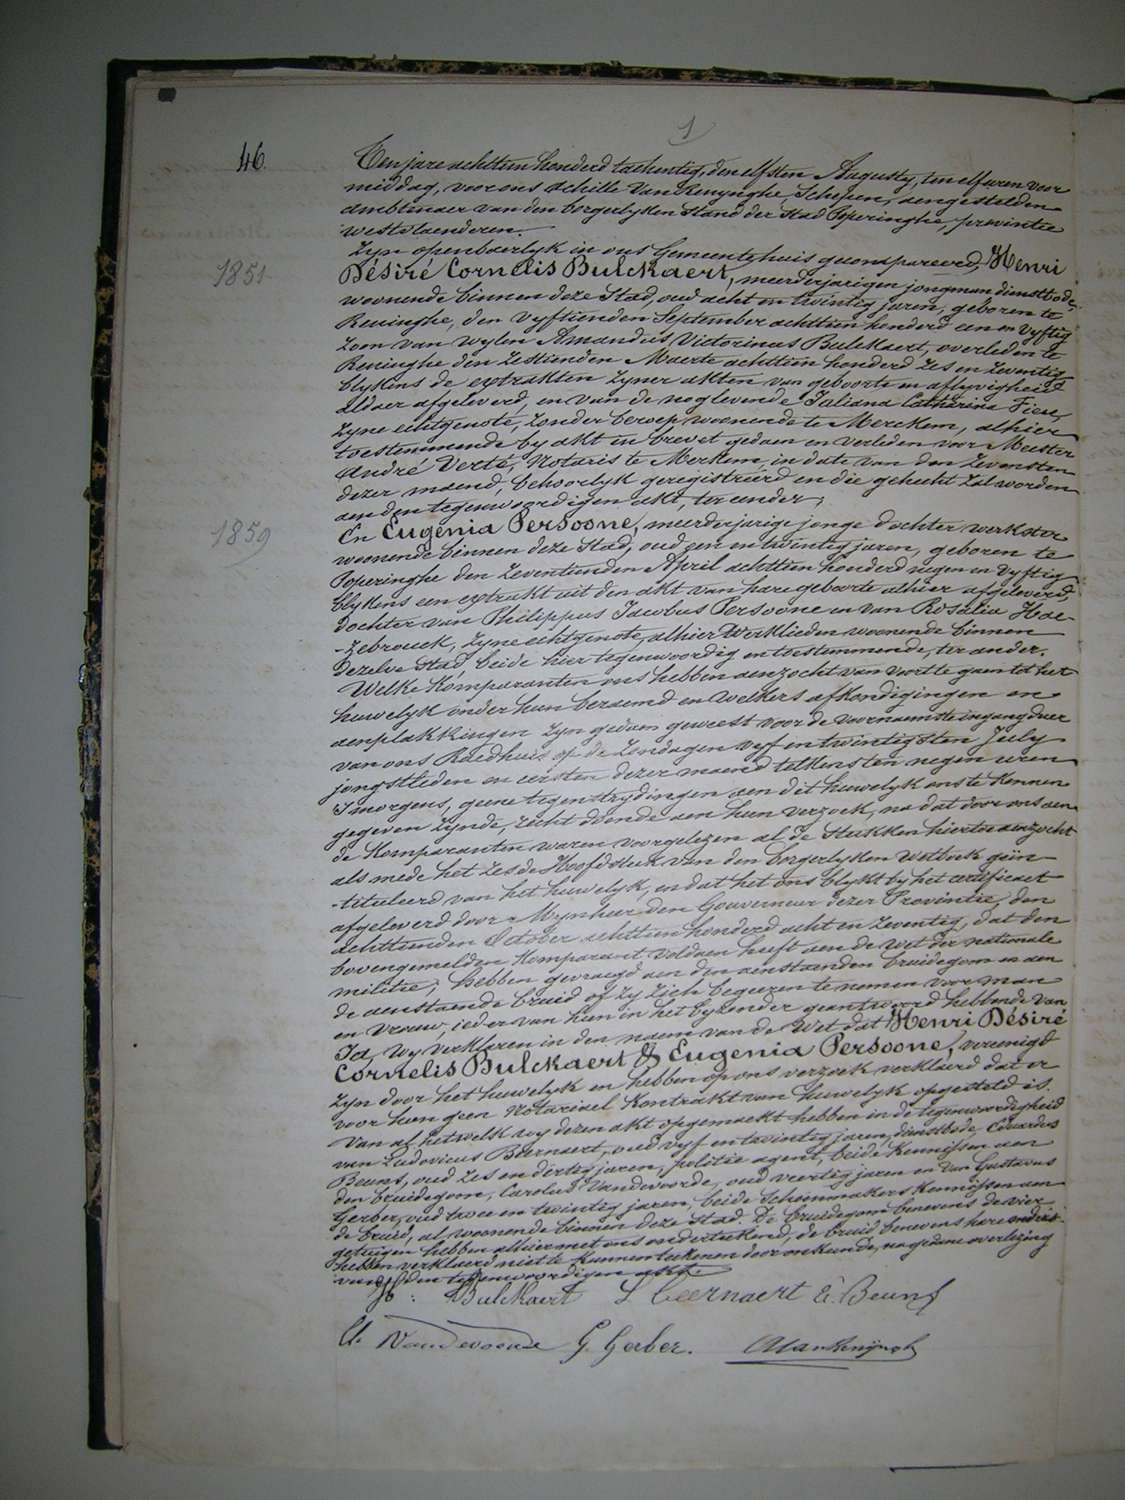 1
46.
Ten jare achttien honderd tachentig, den elfsten Augusty, ten elf uren voor
middag, voor ons Achille Van Renynghe, Schepen, aengestelden
ambtenaer van den borgerlyken stand der Stad Poperinghe, provintie
westvlaenderen.
Zyn openbaerlyk in ons Gemeentehuis gecompareerd, Henri
1851
Désiré Cornelis Bulckaert, meerderjarigen jongman dienstbode,
woonende binnen deze Stad, oud acht en twintig jaren, geboren te
Reninghe, den vyftienden September achttien honderd een en vyftig
zoon van wylen Amandus Victorinus Bulckaert, overleden te
Reninghe den zestienden Maerte achttien honderd zes en zeventig
blykens de extrakten zyner akten van geboorte en aflyvigheid
aldaer afgeleverd, en van de nog levende Juliana Catharina Fieu,
zyne echtgenote, zonder beroep, woonende te Merckem, alhier
toestemmende by akt in brevet gedaen en verleden voor Meester
André Verté, Notaris te Merkem, in date van den zevensten
dezer maend, behoorlyk geregistreerd en die gehecht zal worden
aen den tegenwoordigen akt, ter eender;
1859
En Eugenia Persoone, meerderjarige jonge dochter werkster
woonende binnen deze Stad, oud een en twintig jaren, geboren te
Poperinghe den zeventienden April achttien honderd negen en vyftig
blykens een extrakt uit den akt van hare geboorte alhier afgeleverd,
dochter van Philippus Jacobus Persoone en van Rosalia Hae-
-zebrouck, zyne echtgenote, alhier Werklieden woonende binnen
dezelve Stad, beide hier tegenwoordig en toestemmende, ter ander.
Welke Komparanten ons hebben aenzocht van voort te gaen tot het
huwelyk onder hun beraemd en welkers afkondigingen en
aenplakkingen zyn gedaen geweest voor de voornaemste ingangdeur
van ons Raedhuis op de zondagen vyf en twintigsten July
jongstleden en eersten dezer maend telkens ten negen uren
's morgens, geene tegenstrydingen aen dit huwelyk ons te kennen
gegeven zynde, recht doende aen hun verzoek, na dat door ons aen
de Komparanten waren voorgelezen al de stukken hiertoe aenzocht
als mede het zesde Hoofdstuk van den borgerlyken Wetboek geïn-
-tituleerd van het huwelyk, en dat het ons blykt by het certificaet
afgeleverd door Mynheer den Gouverneur dezer Provintie, den
achttienden October achttien honderd acht en zeventig, dat den
bovengemelden Komparant voldaen heeft aen de wet der nationale
militie; Hebben gevraegd aen den aenstaenden bruidegom en aen
de aenstaende bruid of zy zich begeeren te nemen voor man
en vrouw, ieder van hun in het byzonder geantwoord hebbende van
Ja, Wy verklaren in den naem van de Wet dat Henri Désiré
Cornelis Bulckaert & Eugenia Persoone, vereenigd
zyn door het huwelyk en hebben op ons verzoek verklaerd dat er
voor hun geen Notariael Kontrakt van huwelyk opgesteld is.
Van al hetwelk wy dezen akt opgemaekt hebben in de tegenwoordigheid
van Ludovicus Beernaert, oud vyf en twintig jaren, dienstbode, Eduardus
Beuns, oud zes en dertig jaren, politie agent, beide Kennissen aen
den bruidegom, Carolus Vandevoorde, oud veertig jaren en van Gustavus
Gerber, oud twee en twintig jaren, beide Schoenmakers Kennissen aen
de bruid, al woonende binnen deze Stad. De bruidegom benevens de vier
getuigen hebben alhier met ons ondertekend, de bruid benevens hare ouders
hebben verklaerd niet te kunnen teekenen door onkunde, na gedane overlezing
van den tegenwoordigen akt.
H: Bulckaert L Beernaert E. Beuns
C. Vandevoorde G. Gerber. AVanRenynghe